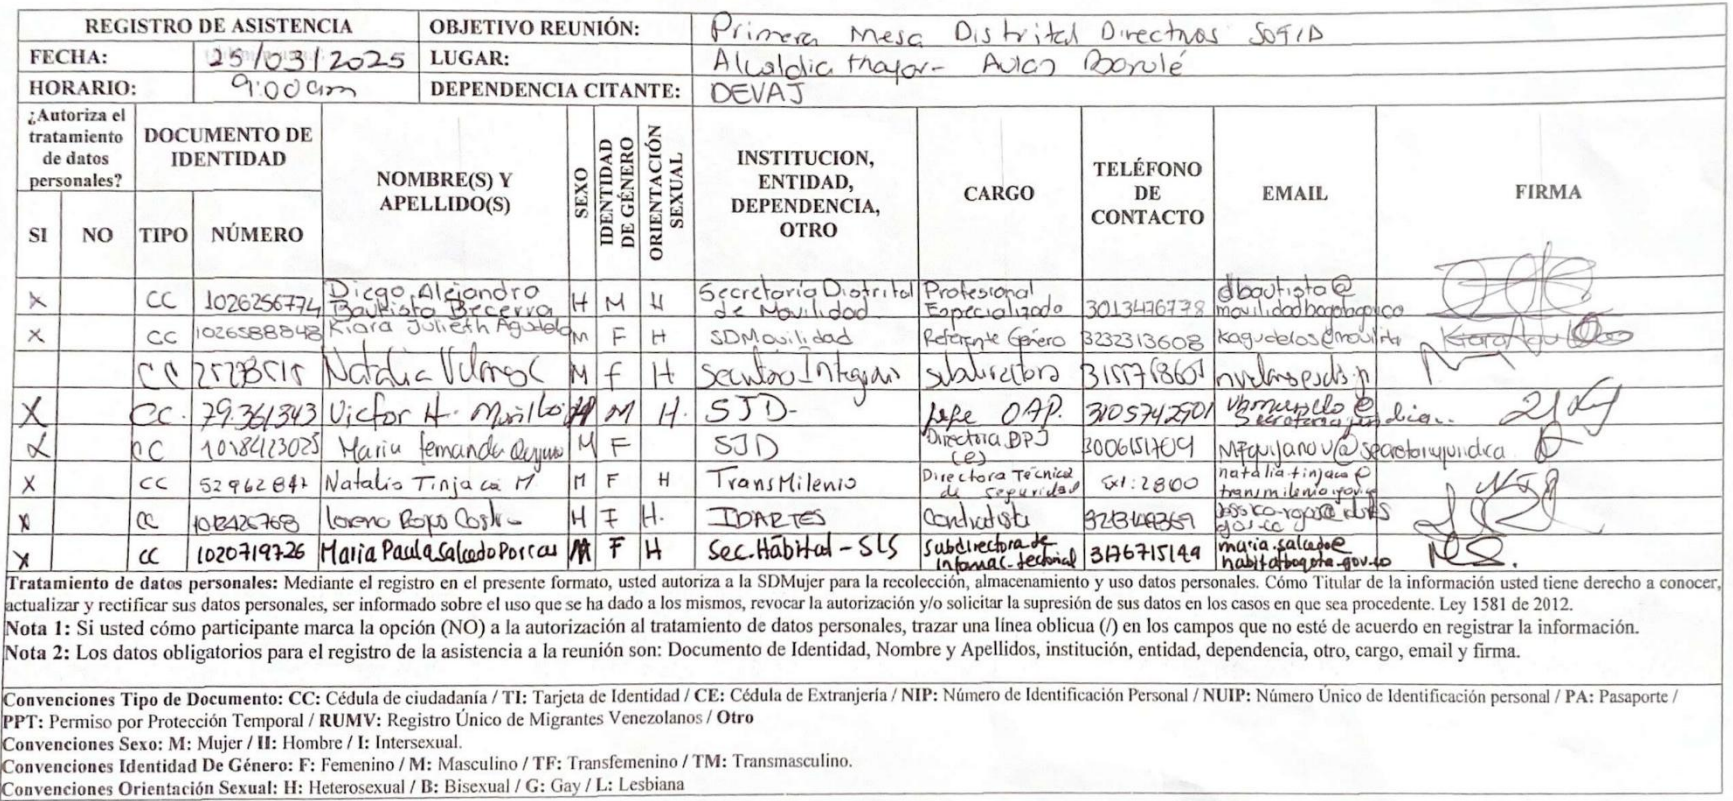 REGISTRO DE ASISTENCIA OBJETIVO REUNIÓN: Primera Mesa Distrital Directivos SOFID
FECHA: 25/03/2025 LUGAR: Alcaldia Mayor- Aulas Barulé
HORARIO: 9:00 am DEPENDENCIA CITANTE: DEVAJ
¿Autoriza el tratamiento de datos personales?
SI NO
DOCUMENTO DE IDENTIDAD
TIPO NÚMERO
NOMBRE(S) Y APELLIDO(S)
SEXO
IDENTIDAD DE GÉNERO
ORIENTACIÓN SEXUAL
INSTITUCION, ENTIDAD, DEPENDENCIA, OTRO
CARGO
TELÉFONO DE CONTACTO
EMAIL
FIRMA
X CC 1026256774 Diego Alejandro Bautista Becerra H M H Secretaría Distrital de Movilidad Profesional Especializado 3013476778 dbautista@
X CC 1026588848 Kiara Julieth Agudelo M F H SDMovilidad Referente Género 3232313608
CC Natalia M F H subdirectora
X CC. 79.361.343 Victor H. Murillo H M H. SJD- Jefe OAP. 3105742901
X CC Maria fernanda M F SJD Directora
X CC Natalia Tinjacá M M F H TransMilenio Directora Técnica de seguridad Ext: 2800 natalia.tinjaca@ transmilenio.gov.co
X CC F H. IDARTES Contratista
X CC 1020719726 Maria Paula Salcedo Porras M F H Sec. Hábitat - SIS Subdirectora de Informac. sectorial 3176715144 maria.salcedo@ habitatbogota.gov.co
Tratamiento de datos personales: Mediante el registro en el presente formato, usted autoriza a la SDMujer para la recolección, almacenamiento y uso datos personales. Cómo Titular de la información usted tiene derecho a conocer,
actualizar y rectificar sus datos personales, ser informado sobre el uso que se ha dado a los mismos, revocar la autorización y/o solicitar la supresión de sus datos en los casos en que sea procedente. Ley 1581 de 2012.
Nota 1: Si usted cómo participante marca la opción (NO) a la autorización al tratamiento de datos personales, trazar una línea oblicua (/) en los campos que no esté de acuerdo en registrar la información.
Nota 2: Los datos obligatorios para el registro de la asistencia a la reunión son: Documento de Identidad, Nombre y Apellidos, institución, entidad, dependencia, otro, cargo, email y firma.
Convenciones Tipo de Documento: CC: Cédula de ciudadanía / TI: Tarjeta de Identidad / CE: Cédula de Extranjería / NIP: Número de Identificación Personal / NUIP: Número Único de Identificación personal / PA: Pasaporte /
PPT: Permiso por Protección Temporal / RUMV: Registro Único de Migrantes Venezolanos / Otro
Convenciones Sexo: M: Mujer / H: Hombre / I: Intersexual.
Convenciones Identidad De Género: F: Femenino / M: Masculino / TF: Transfemenino / TM: Transmasculino.
Convenciones Orientación Sexual: H: Heterosexual / B: Bisexual / G: Gay / L: Lesbiana